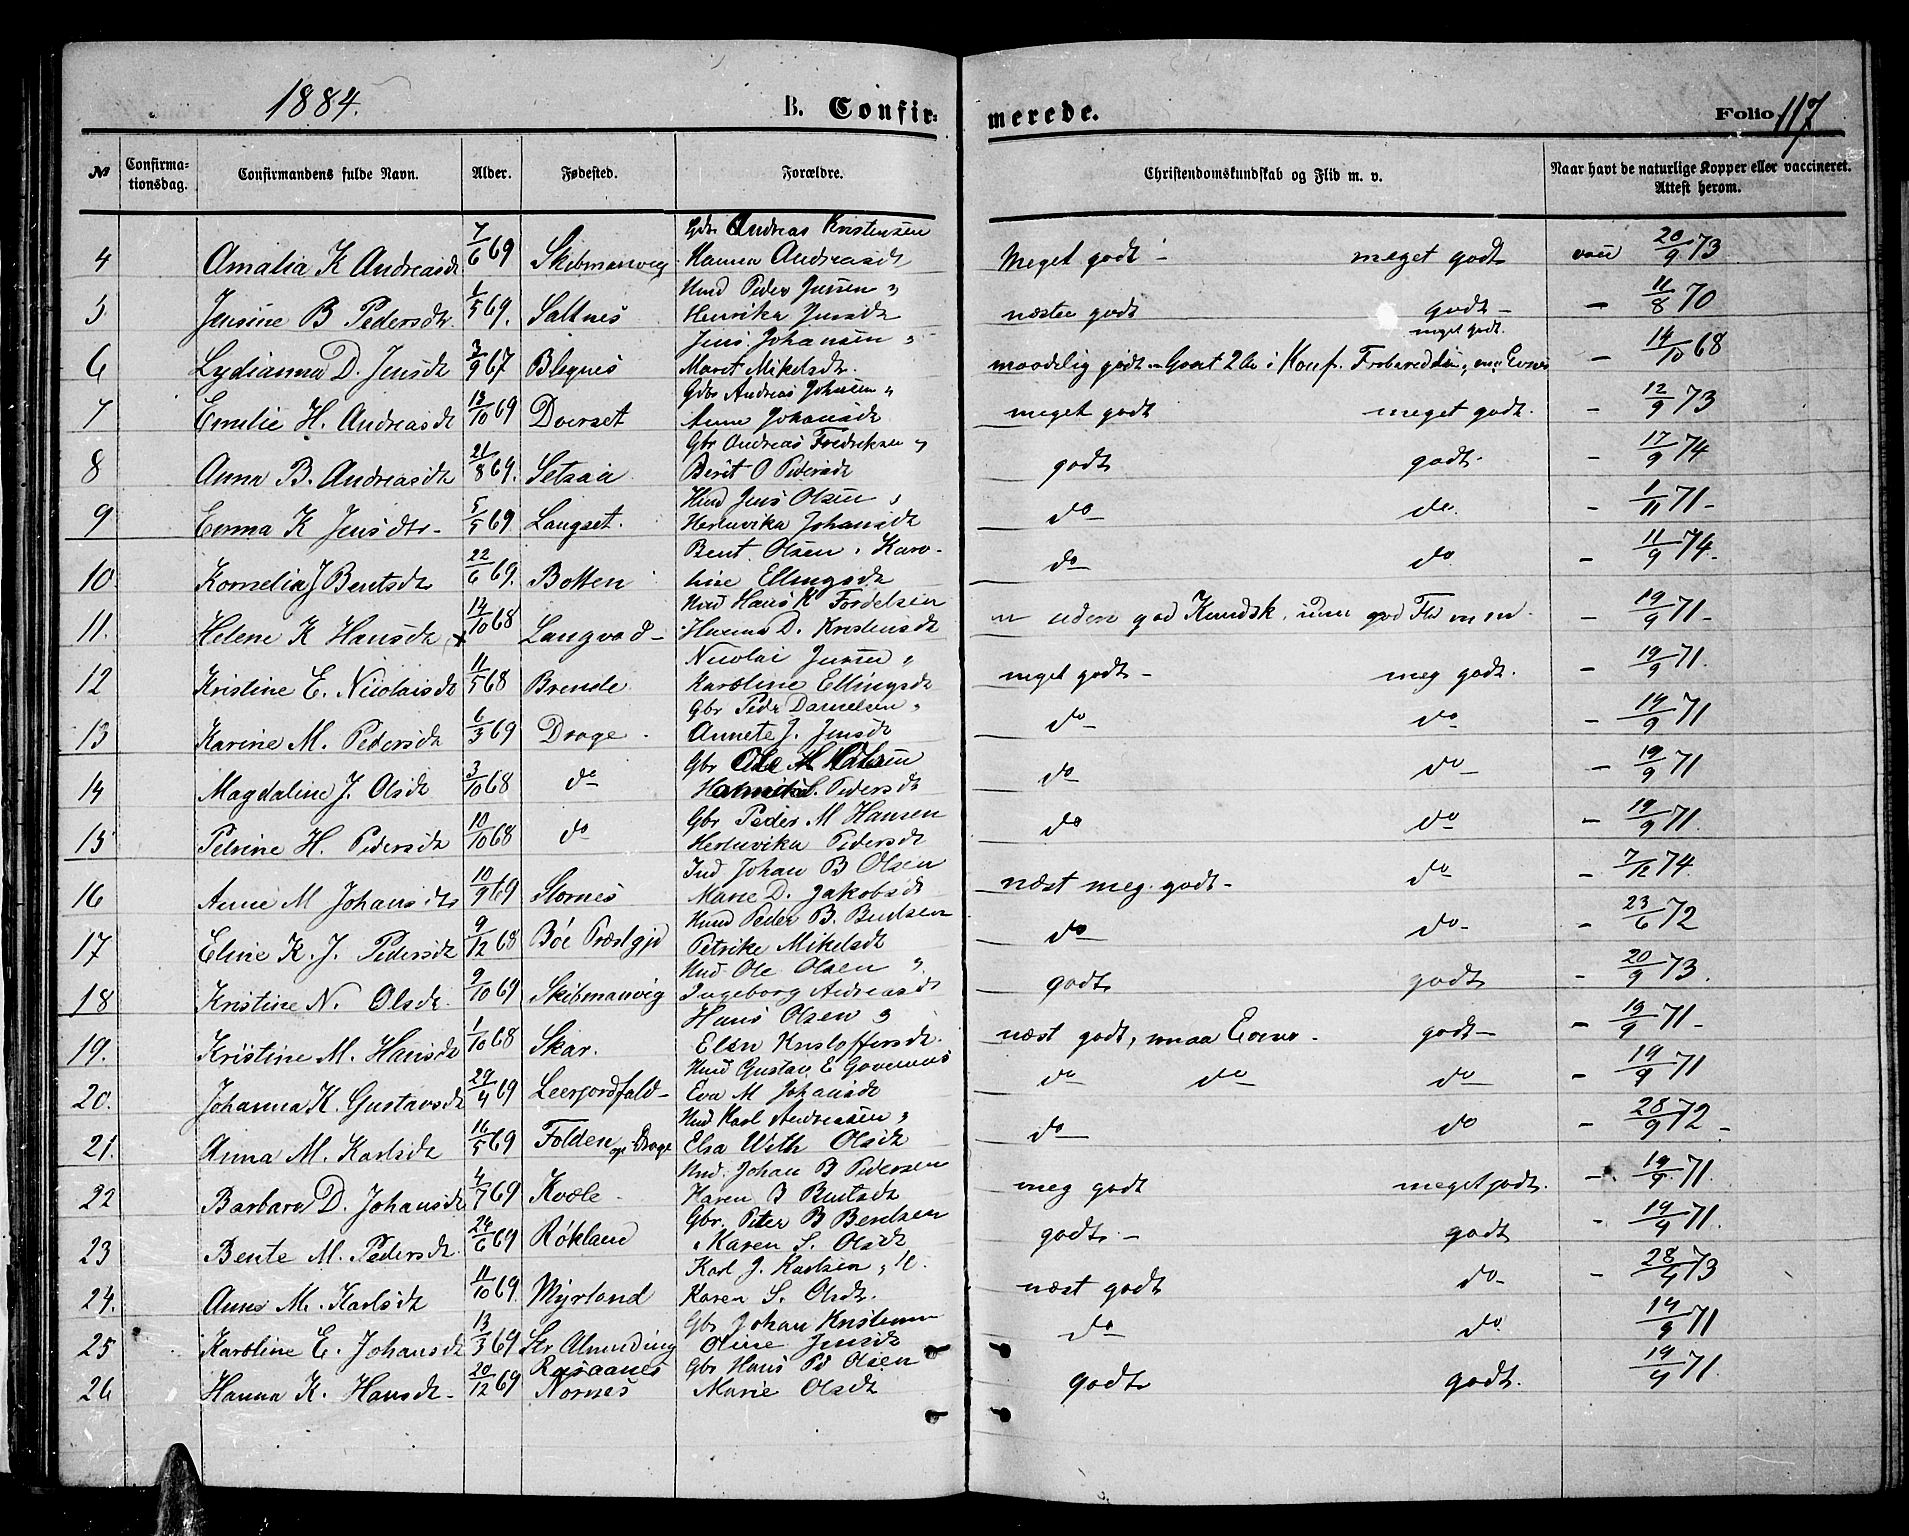 1884.
B. Confir-
merede.
Folio 117
No
Confirma-
tionsdag.
Confirmandens fulde Navn.
Alder.
Fødested.
Forældre.
Christendomskundskab og Flid m. v.
Naar havt de naturlige Kopper eller vaccineret.
Attest herom.
4 Amalia K Andreasdt 7/6 69 Skibmanvig Gbr Andreas Kristensen Hanna Andreasdt Meget godt - meget godt vacc 20/9 73
5 Jensine B Pedersdtr. 1/5 69. Saltnes Hmd Peder Jensen " Henrika Jensdt næsten godt godt - - 11/8 70
6 Lydianna D. Jensdt 3/9 67 Blegnes Jens Johansen " Maret Mikelsdt. maadelig godt - meget godt. - 14/10 68
7 Emelie H. Andreasdt 13/10 69 Dverset Gbr Andreas Johnsen " Anne Johansdt meget godt meget godt. - 12/9 73
8 Anna B. Andreasdt 21/8 69. Setsaa Gbr Andreas Fredriksen " Berit O Pedersdt godt godt. - 17/9 74
9 Emma K Jensdtr - 5/5 69. Langset. Hmd Jens Olsen " Hernvika Johansdt do do. - 1/11 71 -
10. Kornelia J Bentsdt 22/6 69. Botten Bent Olsen, Karo- line Ellingsdt do do - 11/9 74.
11. Helene K Hansdt x 14/10 68 Langvad - Hmd Hans K Hanna D. Kristensdt uden god Kundsk. god Flid - 19/9 71 -
12 Kristine E. Nicolaisdt 11/5 68 Brende. Nicolai Jensen " Karoline Ellingsdt meget godt - meg godt. - 19/9 71.
13 Karine M. Pedersdt 6/3 69 Drage. Gbr Peder Danielsen " Annete J. Jensdt do do - 19/9 71
14 Magdaline J. Olsdt 3/10 68 do Gbr Ole M Pedersdt do do - - 19/9 71
15 Petrine H. Pedersdt 10/10 68 do Gbr Peder M Hansen Hernvika Pedersdt do do - 19/9 71.
16 Anne M Johansdtr 10/9 69 Stornes Ind Johan B Olsen Marie D. Jakobsdt næst meg. godt - do - 7/12 74.
17 Eline K. J. Pedersdt 9/12 68 Bøe Præstgjd Hmd Peder B. Bentsen Petrike Mikelsdt do do - - 23/6 72
18 Kristine N. Olsdt. 9/10 69 Skibmanvig Hmd Ole Olsen " Ingeborg Andreasdt godt godt - 20/9 73.
19. Kristine M. Hansdt 1/10 68 Skar. Hans Olsen " Elen Kristoffersdt. næst godt, maa Evner - godt - - 19/9 71 -
20. Johanna K. Gustavsdt 29/4 69 Leerjordfald - Hmd Gustav E Eva M Johansdt do do do - 19/9 71
21. Anna M. Karlsdt 16/5 69 Folden og Drage Hmd Karl Andreassen " Elsa Wilh Olsdt do do - 28/9 72 -
22 Barbara D. Johansdt 4/7 69 Kvæle. Hmd. Johan B Pedersen Karen B Bentsdt meg godt meget godt. - 19/9 71.
23 Bente M. Pedersdt. 24/6 69 Røkland Gbr. Peter B Bentsen Karen S. Olsdt godt. - godt - 19/9 71.
24. Anne M. Karlsdt 11/10 69 Myrland Karl J. Karlsen Karen S. Olsdt. næst godt do - - 28/9 73
25 Karoline E. Johansdt 13/3 69 Str Almending Gbr Johan Kristensen Oline Jensdt do do 19/9 71
26 Hanna K. Hansdt - 20/12 69 Rosaanes Nornes Gbr Hans Pd Olsen Marie Olsdt godt godt. 19/9 71.